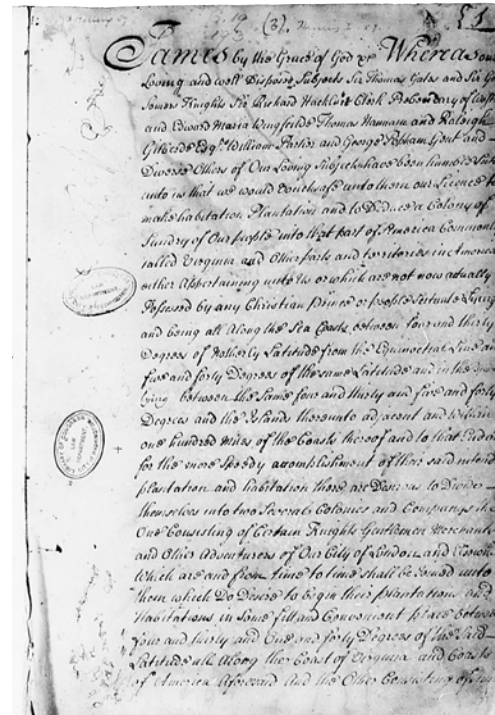 (3).
James by the Grace of God &c Whereas our
Loving and well Disposed Subjects Sir Thomas Gates and Sir Ge
Somers Knights Sir Richard Hackluit Clerk Prebendary of Westm
and Edward Maria Wingfeilde Thomas Hannam and Raleigh
Gilberde Esqrs William Parker and George Popham Gent and
Divers Others of Our Loving Subjects have been humble
unto us that we would vouchsafe unto them our Licence t
make habitation Plantation and to Deduce a Colony of
Sundry of Our people into that part of America Commonl
called Virginia and Other parts and territories in America
either Appertaining unto Us or which are not now actually
Possessed by any Christian Prince or people Scituate Lying
and being all Along the Sea Coasts between four and thirty
Degrees of Notherly Latitude from the Equinoctial Line and
five and forty Degrees of the same Latitude and in the
lying between the Same four and thirty and five and forty
Degrees and the Islands thereunto adjacent and within
one hundred Miles of the Coasts thereof and to that End
for the more Speedy accomplishment of their said intend
plantation and habitation there are Desirous to Divide
themselves into two Several Colonies and Companys the
One Consisting of Certain Knights Gentlemen Merchants
and Other Adventurers of Our City of London and elsewhere
Which are and from time to time shall be Joined unto
them which Do Desire to begin their plantations and
habitations in Some fitt and Convenient place between
four and thirty and One and forty Degrees of the Said
Latitude all Along the Coast of Virginia and Coasts
of America Aforesaid And the Other Consisting of